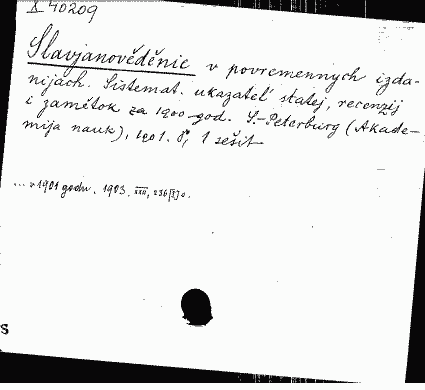 X 40209
Slavjanověděnie v povremennych izda-
nijach. Sistemat. ukazatel' statej, recenzij
i zamětok za 1900 god. S.-Peterburg (Akade-
mija nauk), 1901. 8°, 1 sešit
... v 1901 godu. 1903. XXX, 236
S